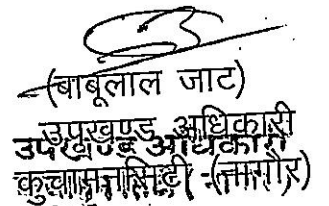 (बाबूलाल जाट)
उपखण्ड अधिकारी
उपखण्ड अधिकारी
कुचामनसिटी (नागौर)